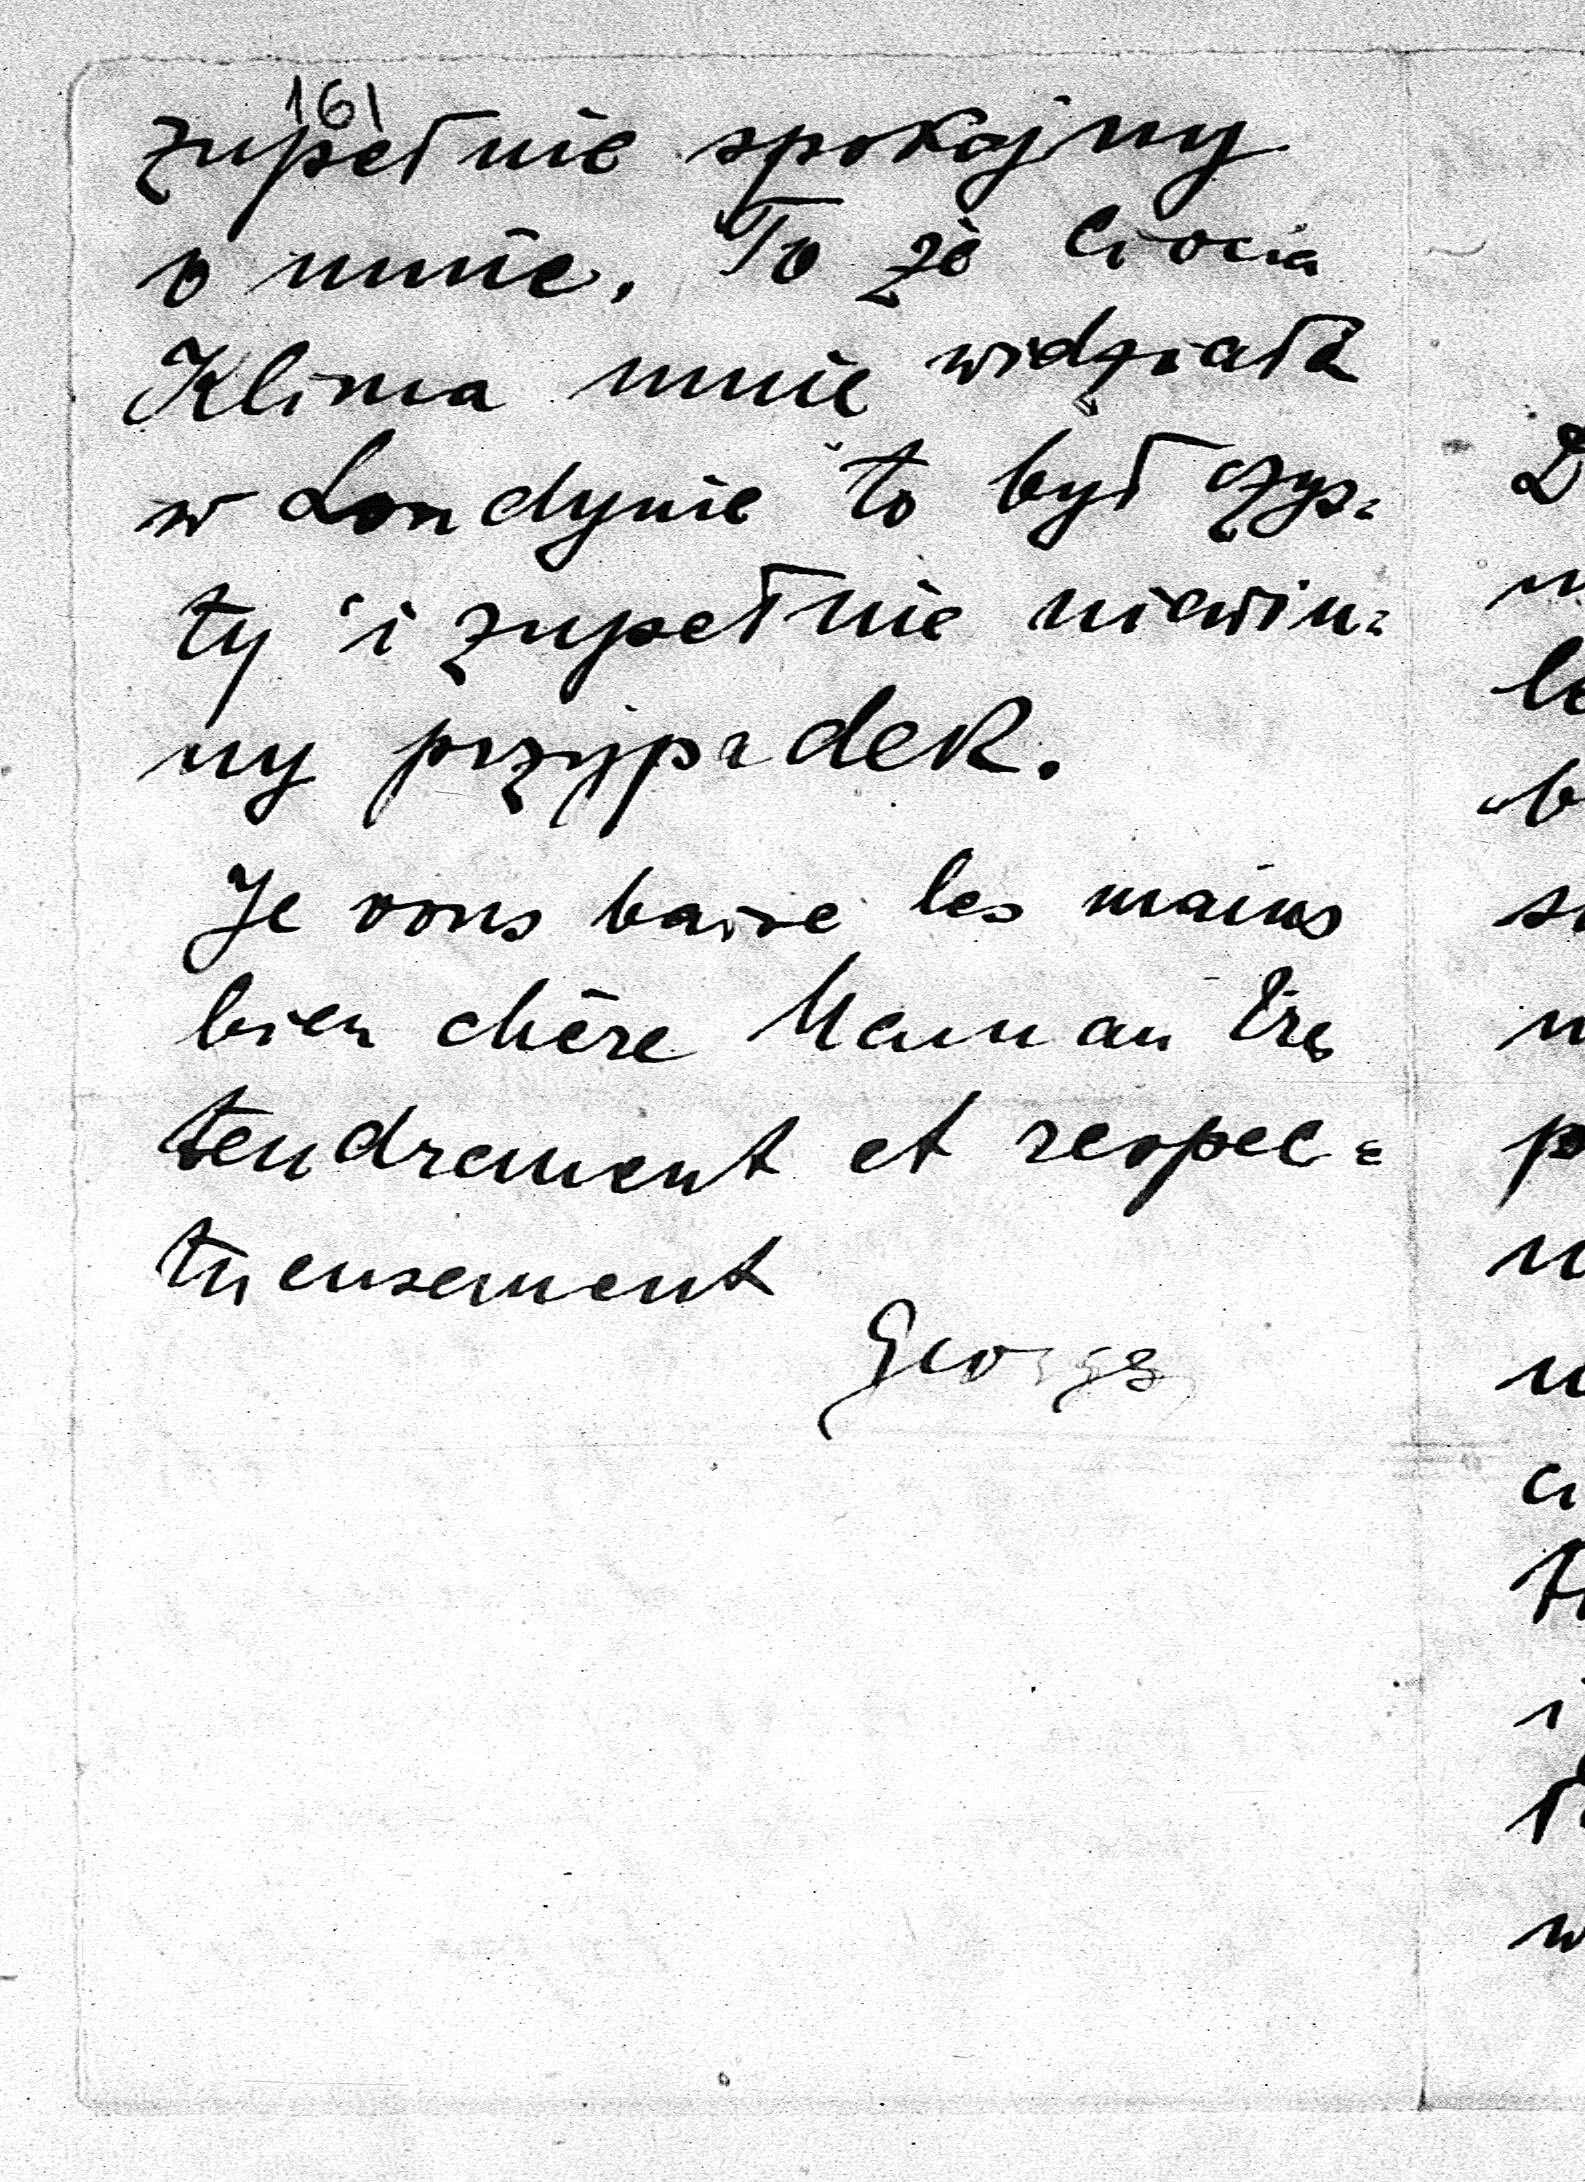 161
zupełnie spokojny
o mnie. To że ciocia
Klima mnie widziała
w Londynie to był czys=
ty i zupełnie niewin=
ny przypadek.
Je vous baise les mains
bien chère Maman très
tendrement et respec=
tueusement
Georges